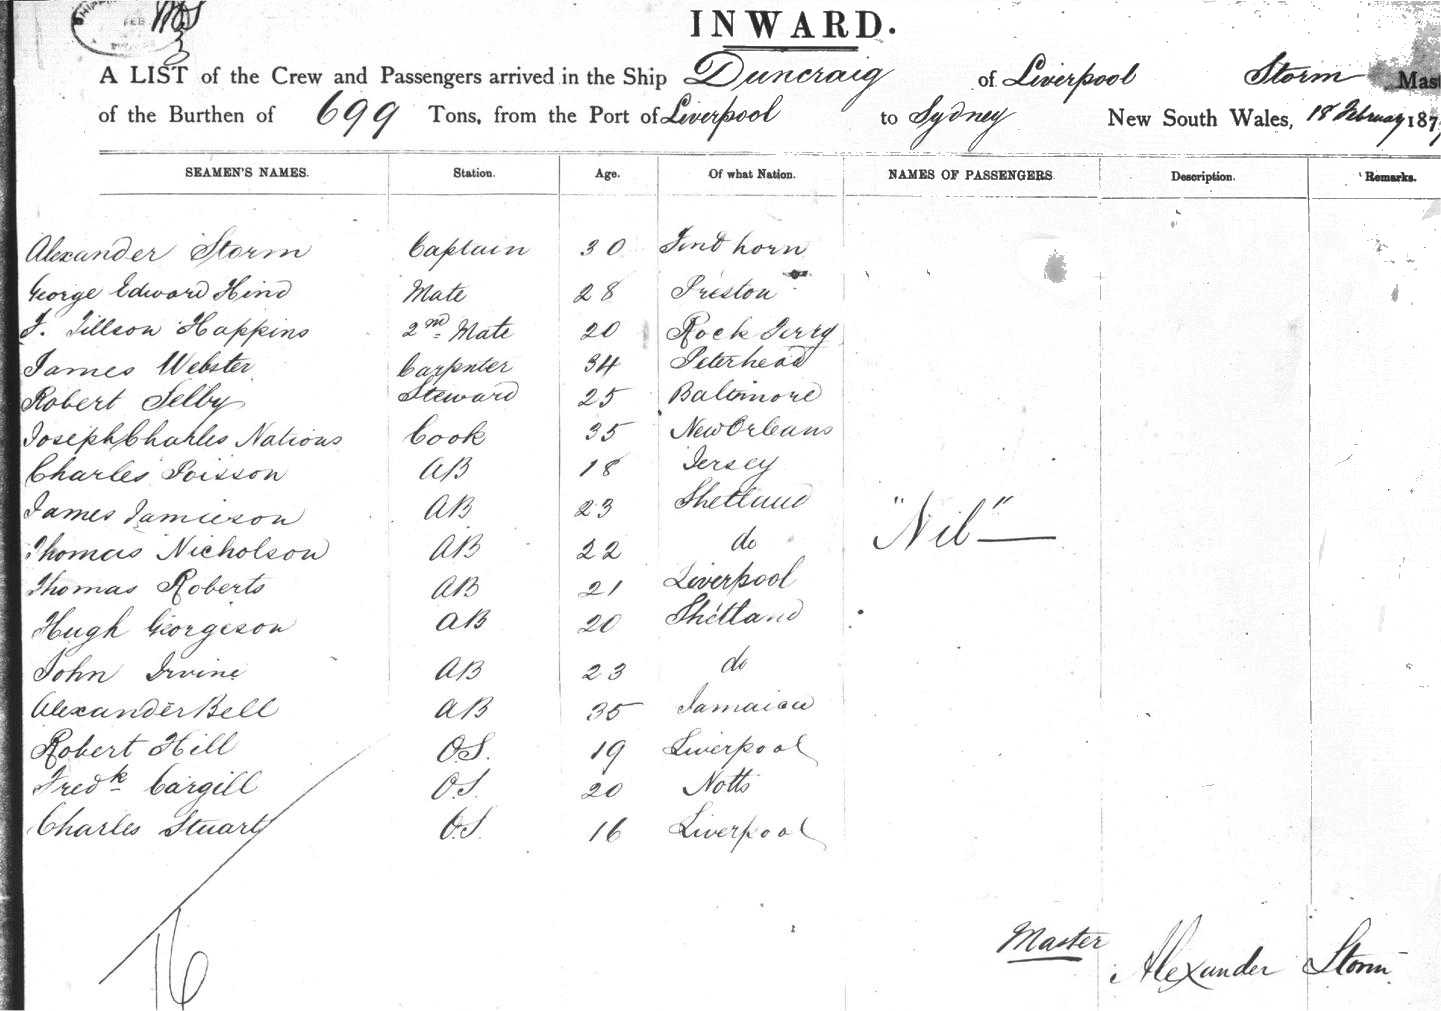 INWARD.
A LIST of the Crew and Passengers arrived in the Ship Duncraig of Liverpool Storm Mast
of the Burthen of 699 Tons, from the Port of Liverpool to Sydney New South Wales, 18 February 187
SEAMEN'S NAMES. Station. Age. Of what Nation. NAMES OF PASSENGERS Description. Remarks.
Alexander Storm Captain 30 Findhorn
George Edward Hind Mate 28 Preston
F. Tillson Happins 2nd Mate 20 Rock Ferry
James Webster Carpnter 34 Peterhead
Robert Selby Steward 25 Baltimore
Joseph Charles Nations Cook 35 New Orleans
Charles Poisson AB 18 Jersey
James Jamieson AB 23 Shetland
"Nil"
Thomas Nicholson AB 22 do
Thomas Roberts AB 21 Liverpool
Hugh Georgeson AB 20 Shetland
John Irvine AB 23 do
Alexander Bell AB 35 Jamaica
Robert Hill O.S. 19 Liverpool
Fredk Cargill O.S. 20 Notts
Charles Stuart O.S. 16 Liverpool
16
Master Alexander Storm